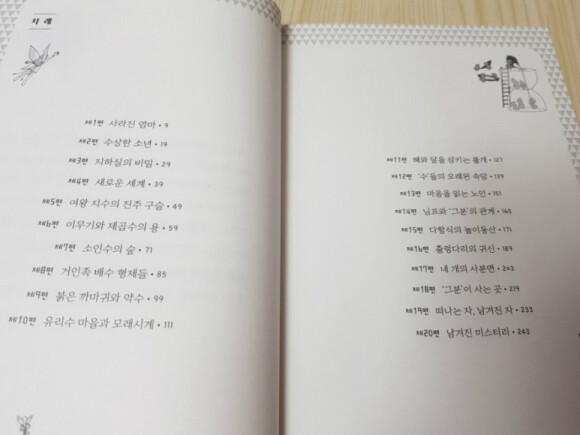 차례
제1편 사라진 엄마 • 9
제2편 수상한 소년 • 19
제3편 지하실의 비밀 • 29
제4편 새로운 세계 • 39
제5편 여왕 지수의 진주 구슬 • 49
제6편 이무기와 제곱수의 용 • 59
제7편 소인수의 숲 • 71
제8편 거인족 배수 형제들 • 85
제9편 붉은 까마귀와 약수 • 99
제10편 유리수 마을과 모래시계 • 111
제11편 해와 달을 삼키는 불개 • 127
제12편 '수'들의 오래된 속담 • 139
제13편 마음을 읽는 노인 • 151
제14편 님프와 '그분'의 관계 • 165
제15편 다항식의 놀이동산 • 177
제16편 출렁다리의 귀신 • 189
제17편 네 개의 사분면 • 203
제18편 '그분'이 사는 곳 • 219
제19편 떠나는 자, 남겨진 자 • 233
제20편 남겨진 미스터리 • 243